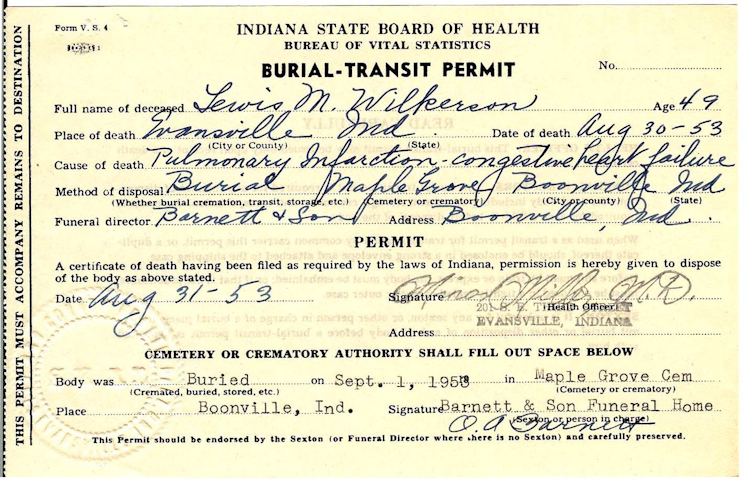 THIS PERMIT MUST ACCOMPANY REMAINS TO DESTINATION
Form V. S. 4
INDIANA STATE BOARD OF HEALTH
BUREAU OF VITAL STATISTICS
BURIAL-TRANSIT PERMIT
No.
Full name of deceased Lewis M. Wilkerson Age 49
Place of death Evansville Ind Date of death Aug 30-53
(City or County) (State)
Cause of death Pulmonary Infarction - congestive heart failure
Method of disposal Burial Maple Grove Boonville Ind
(Whether burial cremation, transit, storage, etc.) (Cemetery or crematory) (City or county) (State)
Funeral director Barnett & Son Address Boonville, Ind.
PERMIT
A certificate of death having been filed as required by the laws of Indiana, permission is hereby given to dispose
of the body as above stated.
Date Aug 31-53 Signature Miller M.D.
201 S. E. Health Officer
Address EVANSVILLE, INDIANA
CEMETERY OR CREMATORY AUTHORITY SHALL FILL OUT SPACE BELOW
Body was Buried on Sept. 1, 1953 in Maple Grove Cem
(Cremated, buried, stored, etc.) (Cemetery or crematory)
Place Boonville, Ind. Signature Barnett & Son Funeral Home
(Sexton or person in charge)
O. A. Barnett
This Permit should be endorsed by the Sexton (or Funeral Director where there is no Sexton) and carefully preserved.